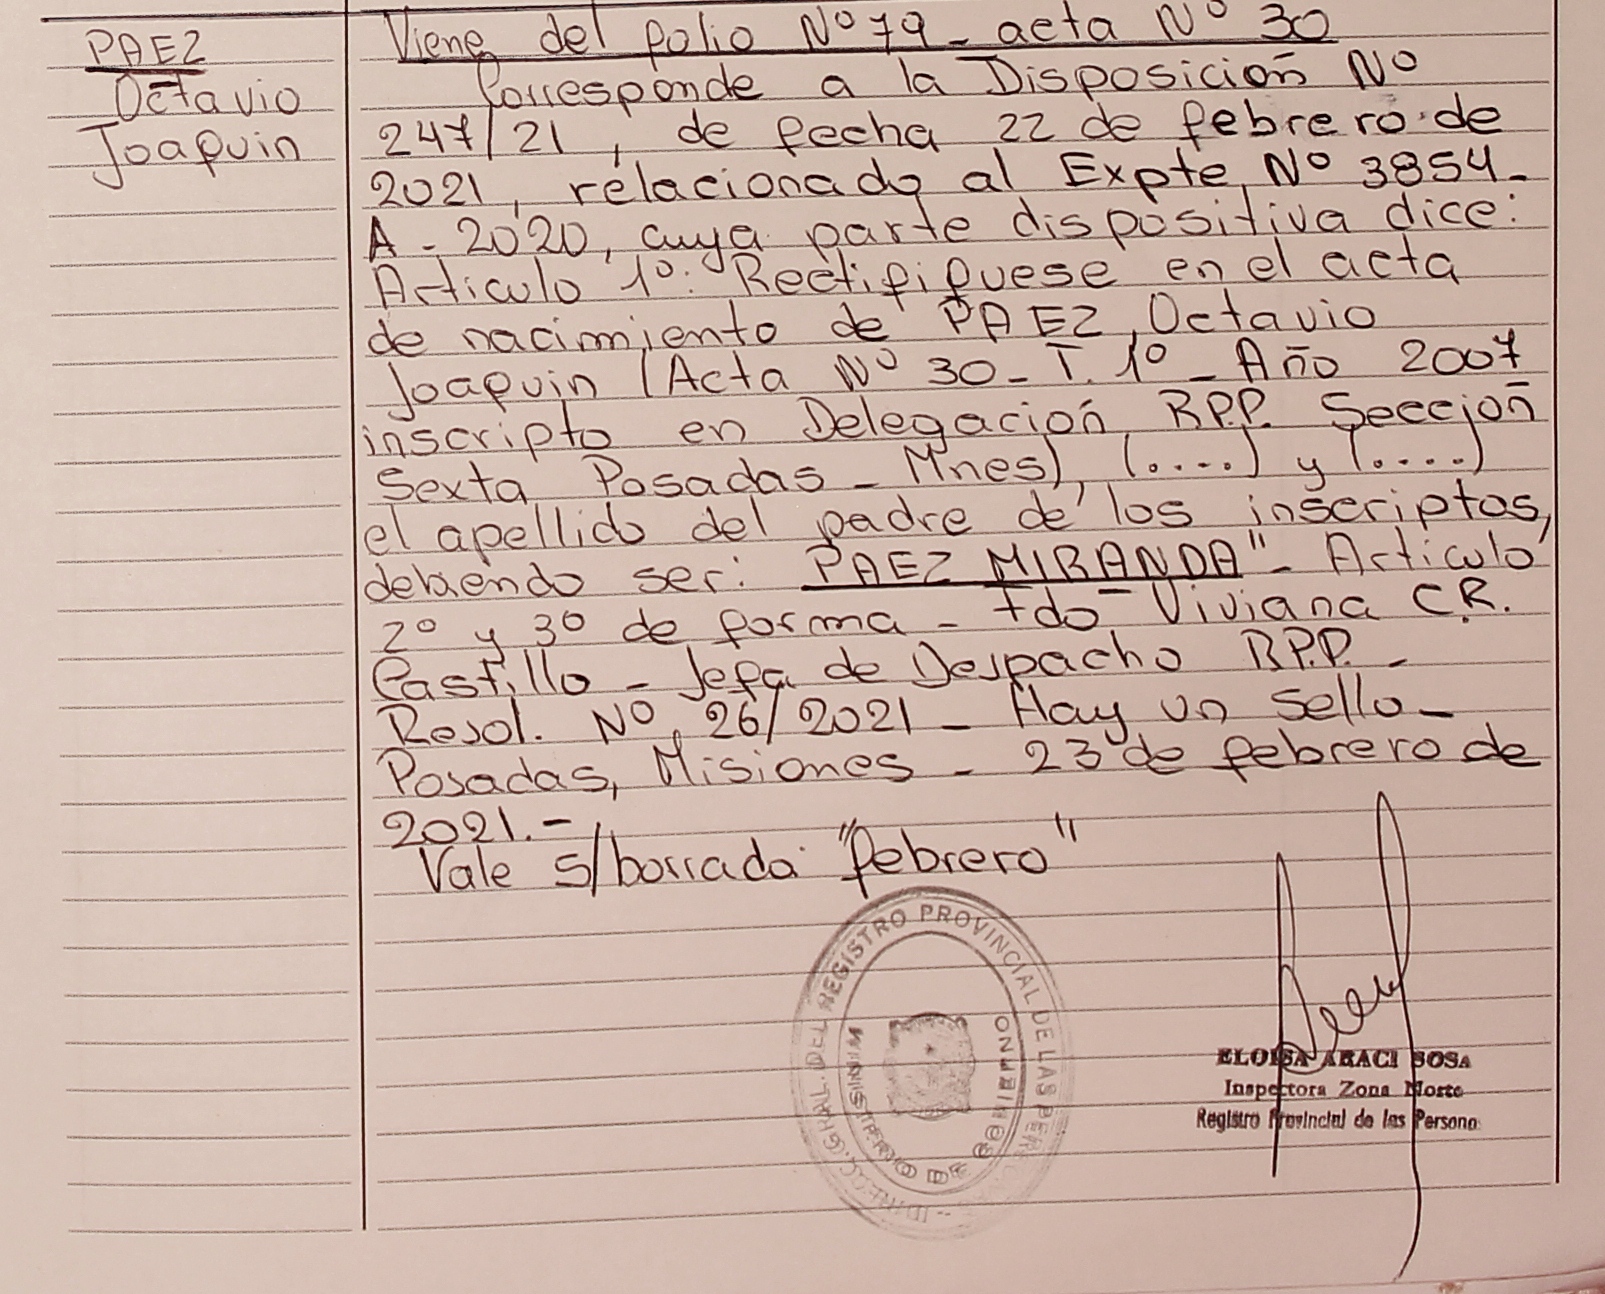 PAEZ
Octavio
Joaquin
Viene del folio Nº 79 - acta Nº 30
Corresponde a la Disposición Nº
247/21, de fecha 22 de febrero de
2021, relacionado al Expte Nº 3854-
A - 2020, cuya parte dispositiva dice:
Articulo 1º: Rectifiquese en el acta
de nacimiento de PAEZ, Octavio
Joaquin (Acta Nº 30 - T. 1º - Año 2007
inscripto en Delegación R.P.P. Sección
Sexta Posadas - Mnes), (....) y (....)
el apellido del padre de los inscriptos,
debiendo ser: PAEZ MIRANDA" - Articulo
2º y 3º de forma - Fdo Viviana C.R.
Castillo - Jefa de Despacho R.P.P. -
Resol. Nº 26/2021 - Hay un sello -
Posadas, Misiones - 23 de febrero de
2021.-
Vale s/borrado "febrero"
DEL REGISTRO PROVINCIAL DE LAS
MINISTERIO DE GOBIERNO
ELOISA ARACI SOSA
Inspectora Zona Norte
Registro Provincial de las Persona